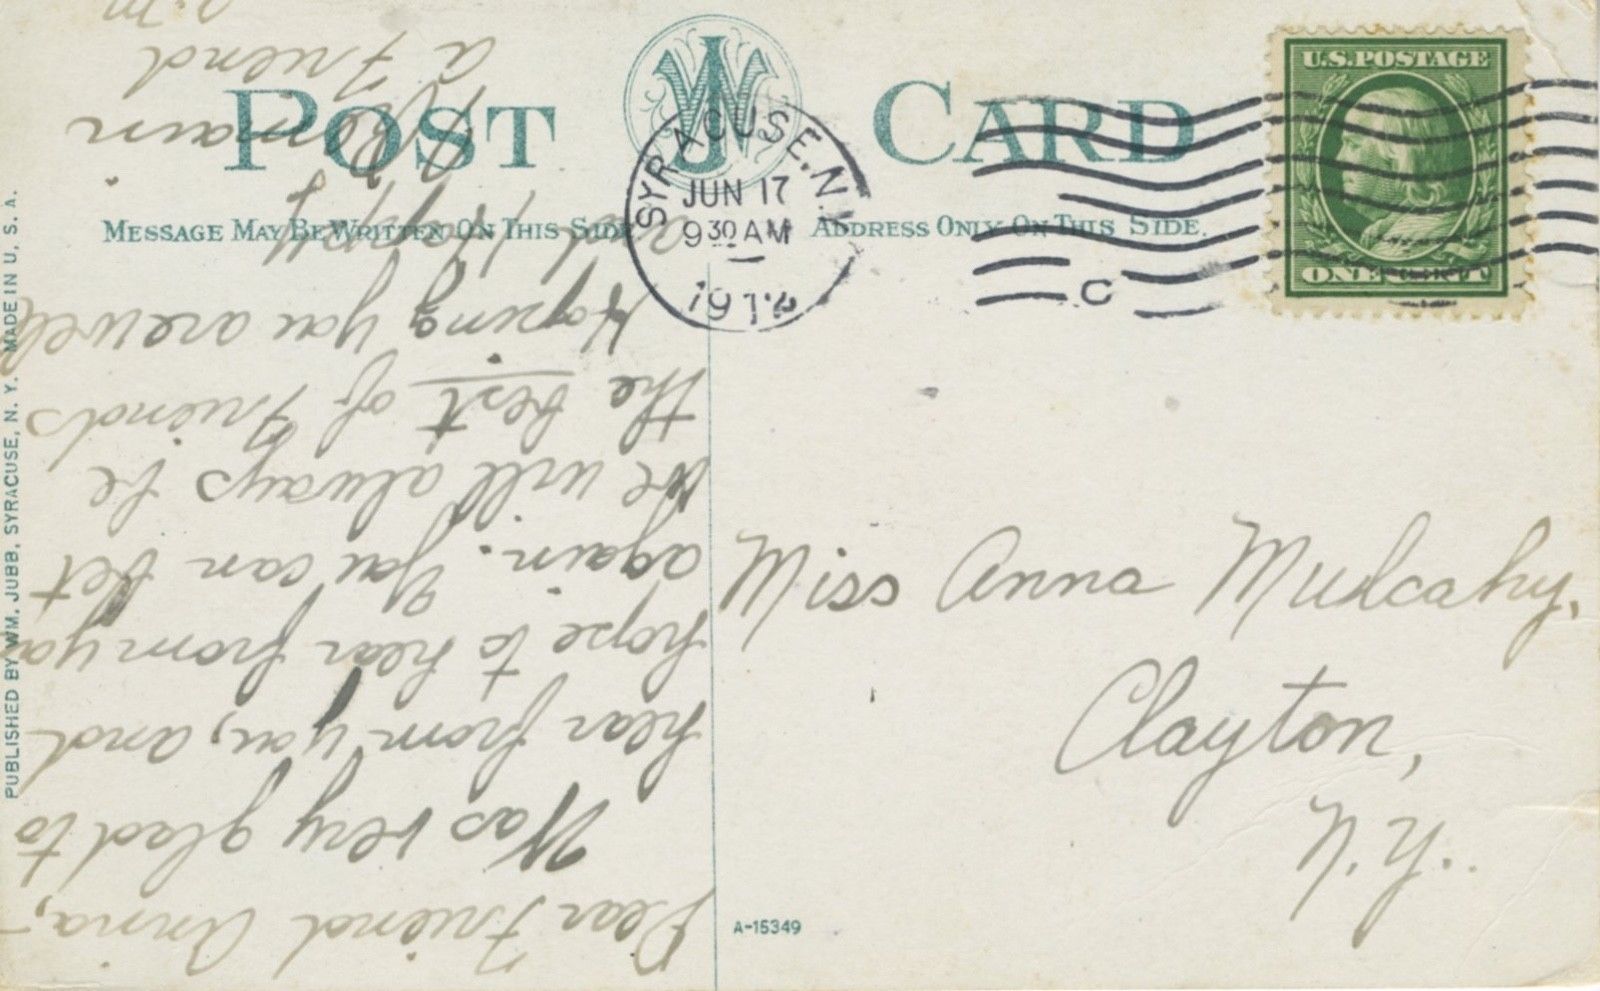 POST CARD
MESSAGE MAY BE WRITTEN ON THIS SIDE
ADDRESS ONLY ON THIS SIDE.
SYRACUSE. N.Y.
JUN 17
9 30 AM
191
C
U.S. POSTAGE
ONE CENT
PUBLISHED BY WM. JUBB, SYRACUSE, N. Y. MADE IN U. S. A.
Dear Friend Anna,-
Was very glad to
hear from you, and
hope to hear from you
again. You can bet
we will always be
the best of Friends
Hoping you are well
and happy
I Remain
a Friend
Miss Anna Mulcahy.
Clayton,
N.Y.
A-15349